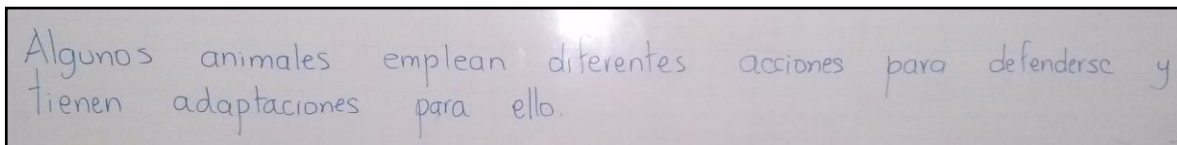 Algunos animales emplean diferentes acciones para defenderse y
tienen adaptaciones para ello.